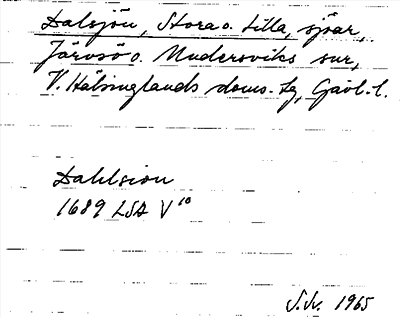 Dalsjön, Stora o. Lilla, sjöar,
Järvsö o. Undersviks snr,
V. Hälsinglands doms.-sg, Gävl. l.
Dahlsion
1689 LSA V 10
1965